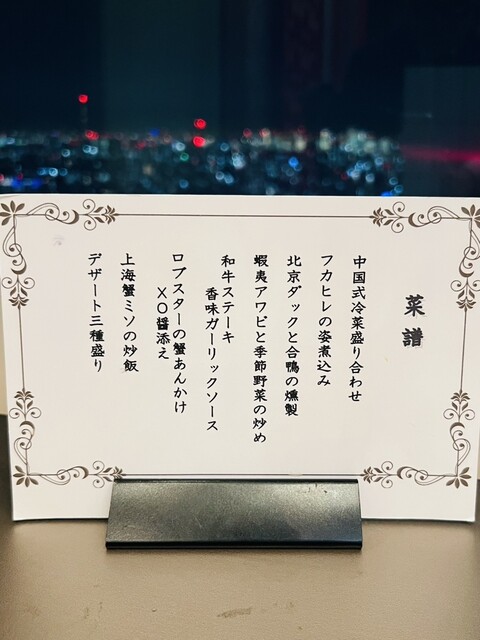 菜譜
中国式冷菜盛り合わせ
フカヒレの姿煮込み
北京ダックと合鴨の燻製
蝦夷アワビと季節野菜の炒め
和牛ステーキ
香味ガーリックソース
ロブスターの蟹あんかけ
XO醤添え
上海蟹ミソの炒飯
デザート三種盛り